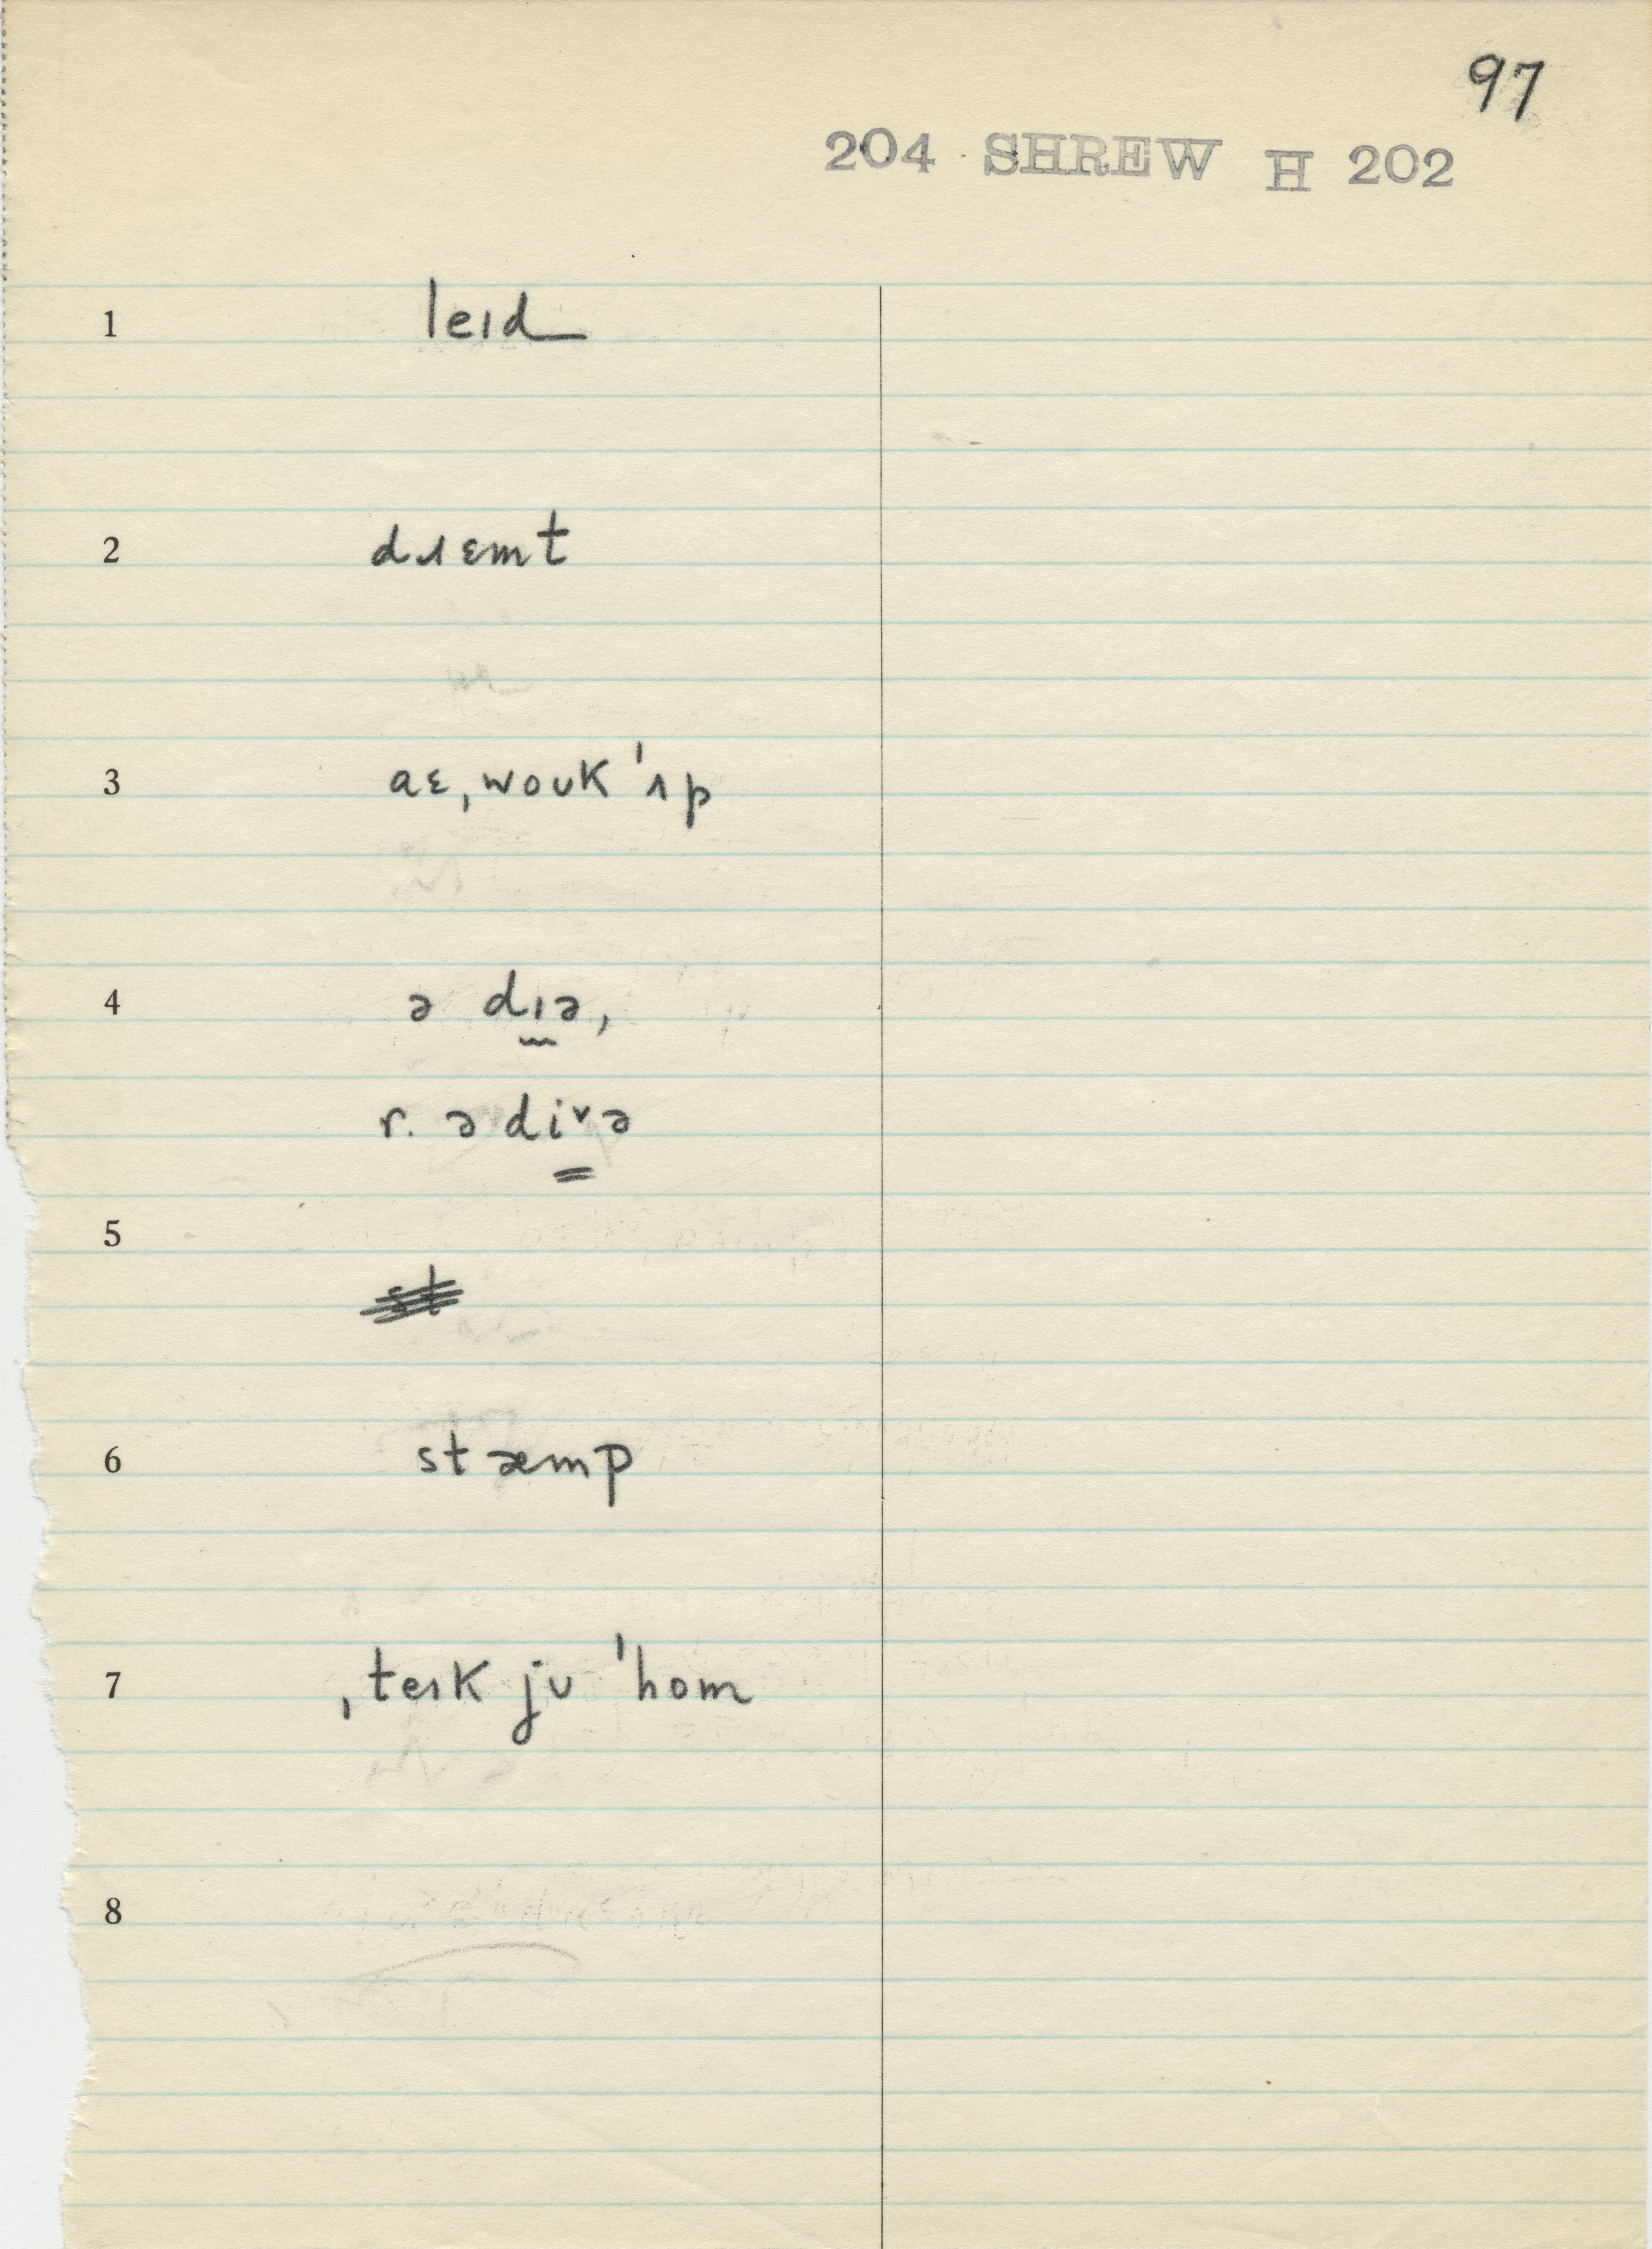 97
204 SHREW H 202
1 leɪd
2 dɹɛmt
3 aɛˌwoʊk ˈʌp
4 ə dɪə,
r. ə diᵛə
5
6 stæmp
7 ˌteɪk jʊ ˈhom
8